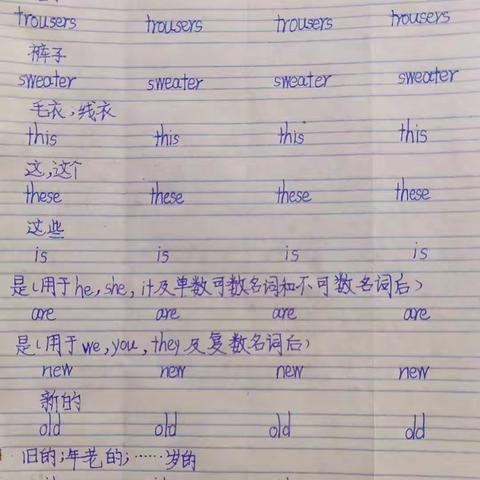 trousers trousers trousers trousers
裤子
sweater sweater sweater sweater
毛衣,线衣
this this this this
这,这个
these these these these
这些
is is is is
是(用于he, she, it及单数可数名词和不可数名词后)
are are are are
是(用于we, you, they及复数名词后)
new new new new
新的
old old old old
旧的;年老的;……岁的